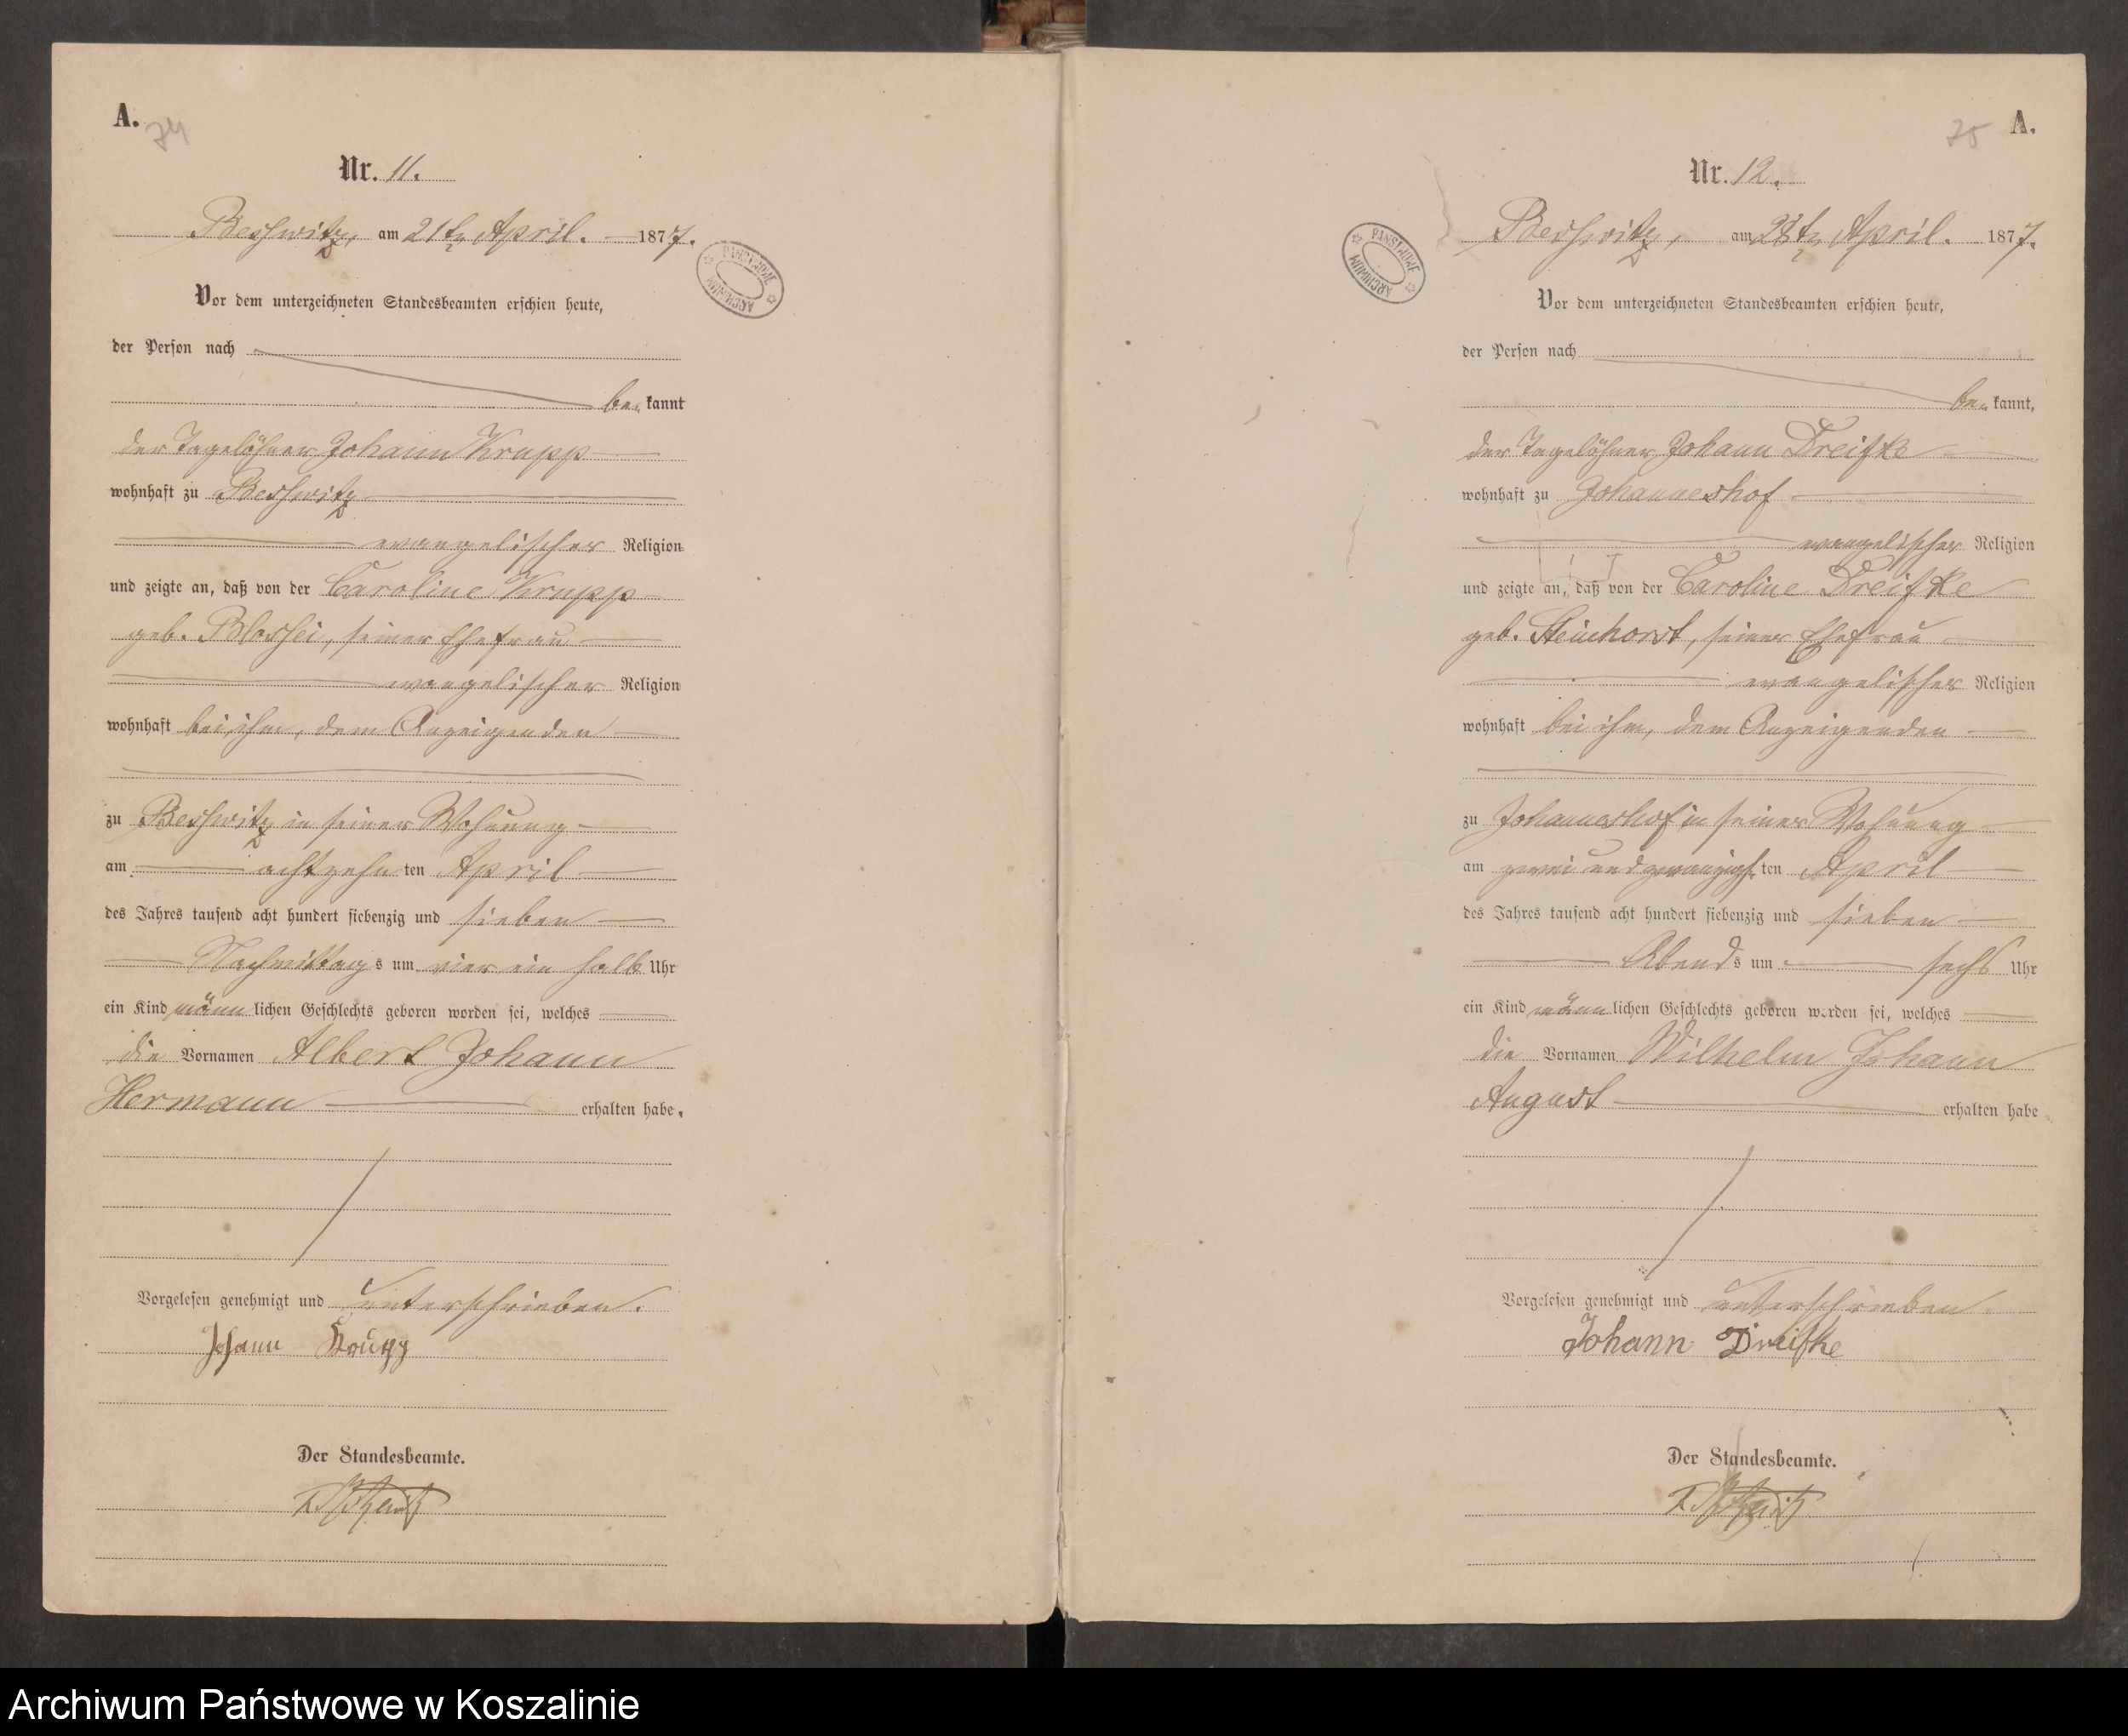 A.
74
Nr. 11.
Beßwitz, am 21t April. 1877.
PAŃSTWOWE ARCHIWUM
Vor dem unterzeichneten Standesbeamten erschien heute,
der Person nach
be kannt
der Tagelöhner Johann Krupp
wohnhaft zu Beßwitz
evangelischer Religion
und zeigte an, daß von der Caroline Krupp
geb. seiner Ehefrau
evangelischer Religion
wohnhaft bei ihm, dem Anzeigenden
zu Beßwitz in seiner Wohnung
am achtzehn ten April
des Jahres tausend acht hundert siebenzig und sieben
Nachmittags um vier ein halb Uhr
ein Kind männlichen Geschlechts geboren worden sei, welches
die Vornamen Albert Johann
Hermann erhalten habe.
Vorgelesen genehmigt und unterschrieben.
Johann Krupp
Der Standesbeamte.
A.
75
Nr. 12.
Beßwitz, am April. 1877.
PAŃSTWOWE ARCHIWUM
Vor dem unterzeichneten Standesbeamten erschien heute,
der Person nach
be kannt,
der Tagelöhner Johann Dreifke
wohnhaft zu Johanneshof
evangelischer Religion
und zeigte an, daß von der Caroline Dreifke
geb. Steinhorst, seiner Ehefrau
evangelischer Religion
wohnhaft bei ihm, dem Anzeigenden
zu Johanneshof in seiner Wohnung
am zwei und zwanzigsten April
des Jahres tausend acht hundert siebenzig und sieben
Abends um sechs Uhr
ein Kind männlichen Geschlechts geboren worden sei, welches
die Vornamen Wilhelm Johann
August erhalten habe
Vorgelesen genehmigt und unterschrieben.
Johann Dreifke
Der Standesbeamte.
Archiwum Państwowe w Koszalinie